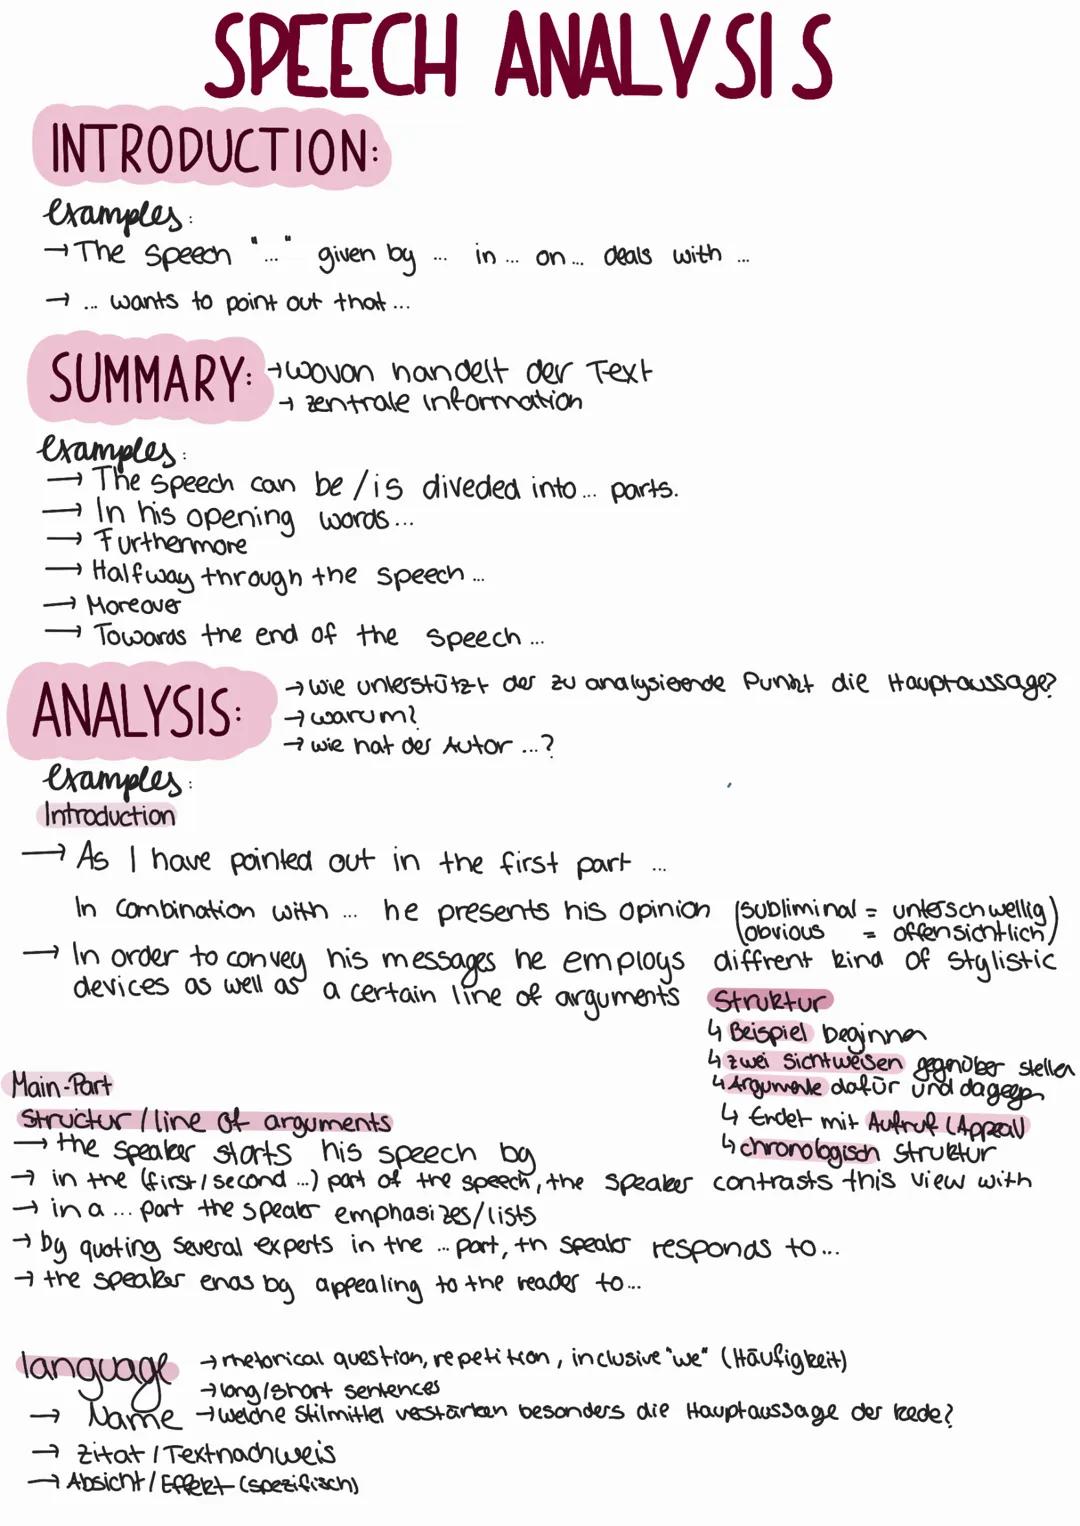 SPEECH ANALYSIS
INTRODUCTION:
examples:
→ The speech "..." given by ... in ... on ... deals with ...
→ ... wants to point out that ...
SUMMARY: → wovon handelt der Text
→ zentrale Information
examples:
→ The speech can be / is diveded into ... parts.
→ In his opening words ...
→ Furthermore
→ Halfway through the speech ...
→ Moreover
→ Towards the end of the speech ...
ANALYSIS: → wie unterstützt der zu analysierende Punkt die Hauptaussage?
→ warum?
→ wie hat der Autor ...?
examples:
Introduction
→ As I have pointed out in the first part ...
In combination with ... he presents his opinion (subliminal = unterschwellig)
(obvious = offensichtlich)
→ In order to convey his messages he employs diffrent kind of stylistic
devices as well as a certain line of arguments
Struktur
↳ Beispiel beginnen
↳ zwei Sichtweisen gegenüber stellen
↳ Argumente dafür und dagegen
↳ Endet mit Aufruf (Appeal)
↳ chronologisch struktur
Main-Part
Structur / line of arguments
→ the speaker starts his speech by
→ in the (first / second ...) part of the speech, the speaker contrasts this view with
→ in a ... part the speaker emphasizes/lists
→ by quoting several experts in the ... part, th speaker responds to ...
→ the speaker ends by appealing to the reader to ...
language → rhetorical question, repetition, inclusive "we" (Häufigkeit)
→ long/short sentences
→ Name → welche Stilmittel verstärken besonders die Hauptaussage der Rede?
→ Zitat / Textnachweis
→ Absicht / Effekt (spezifisch)